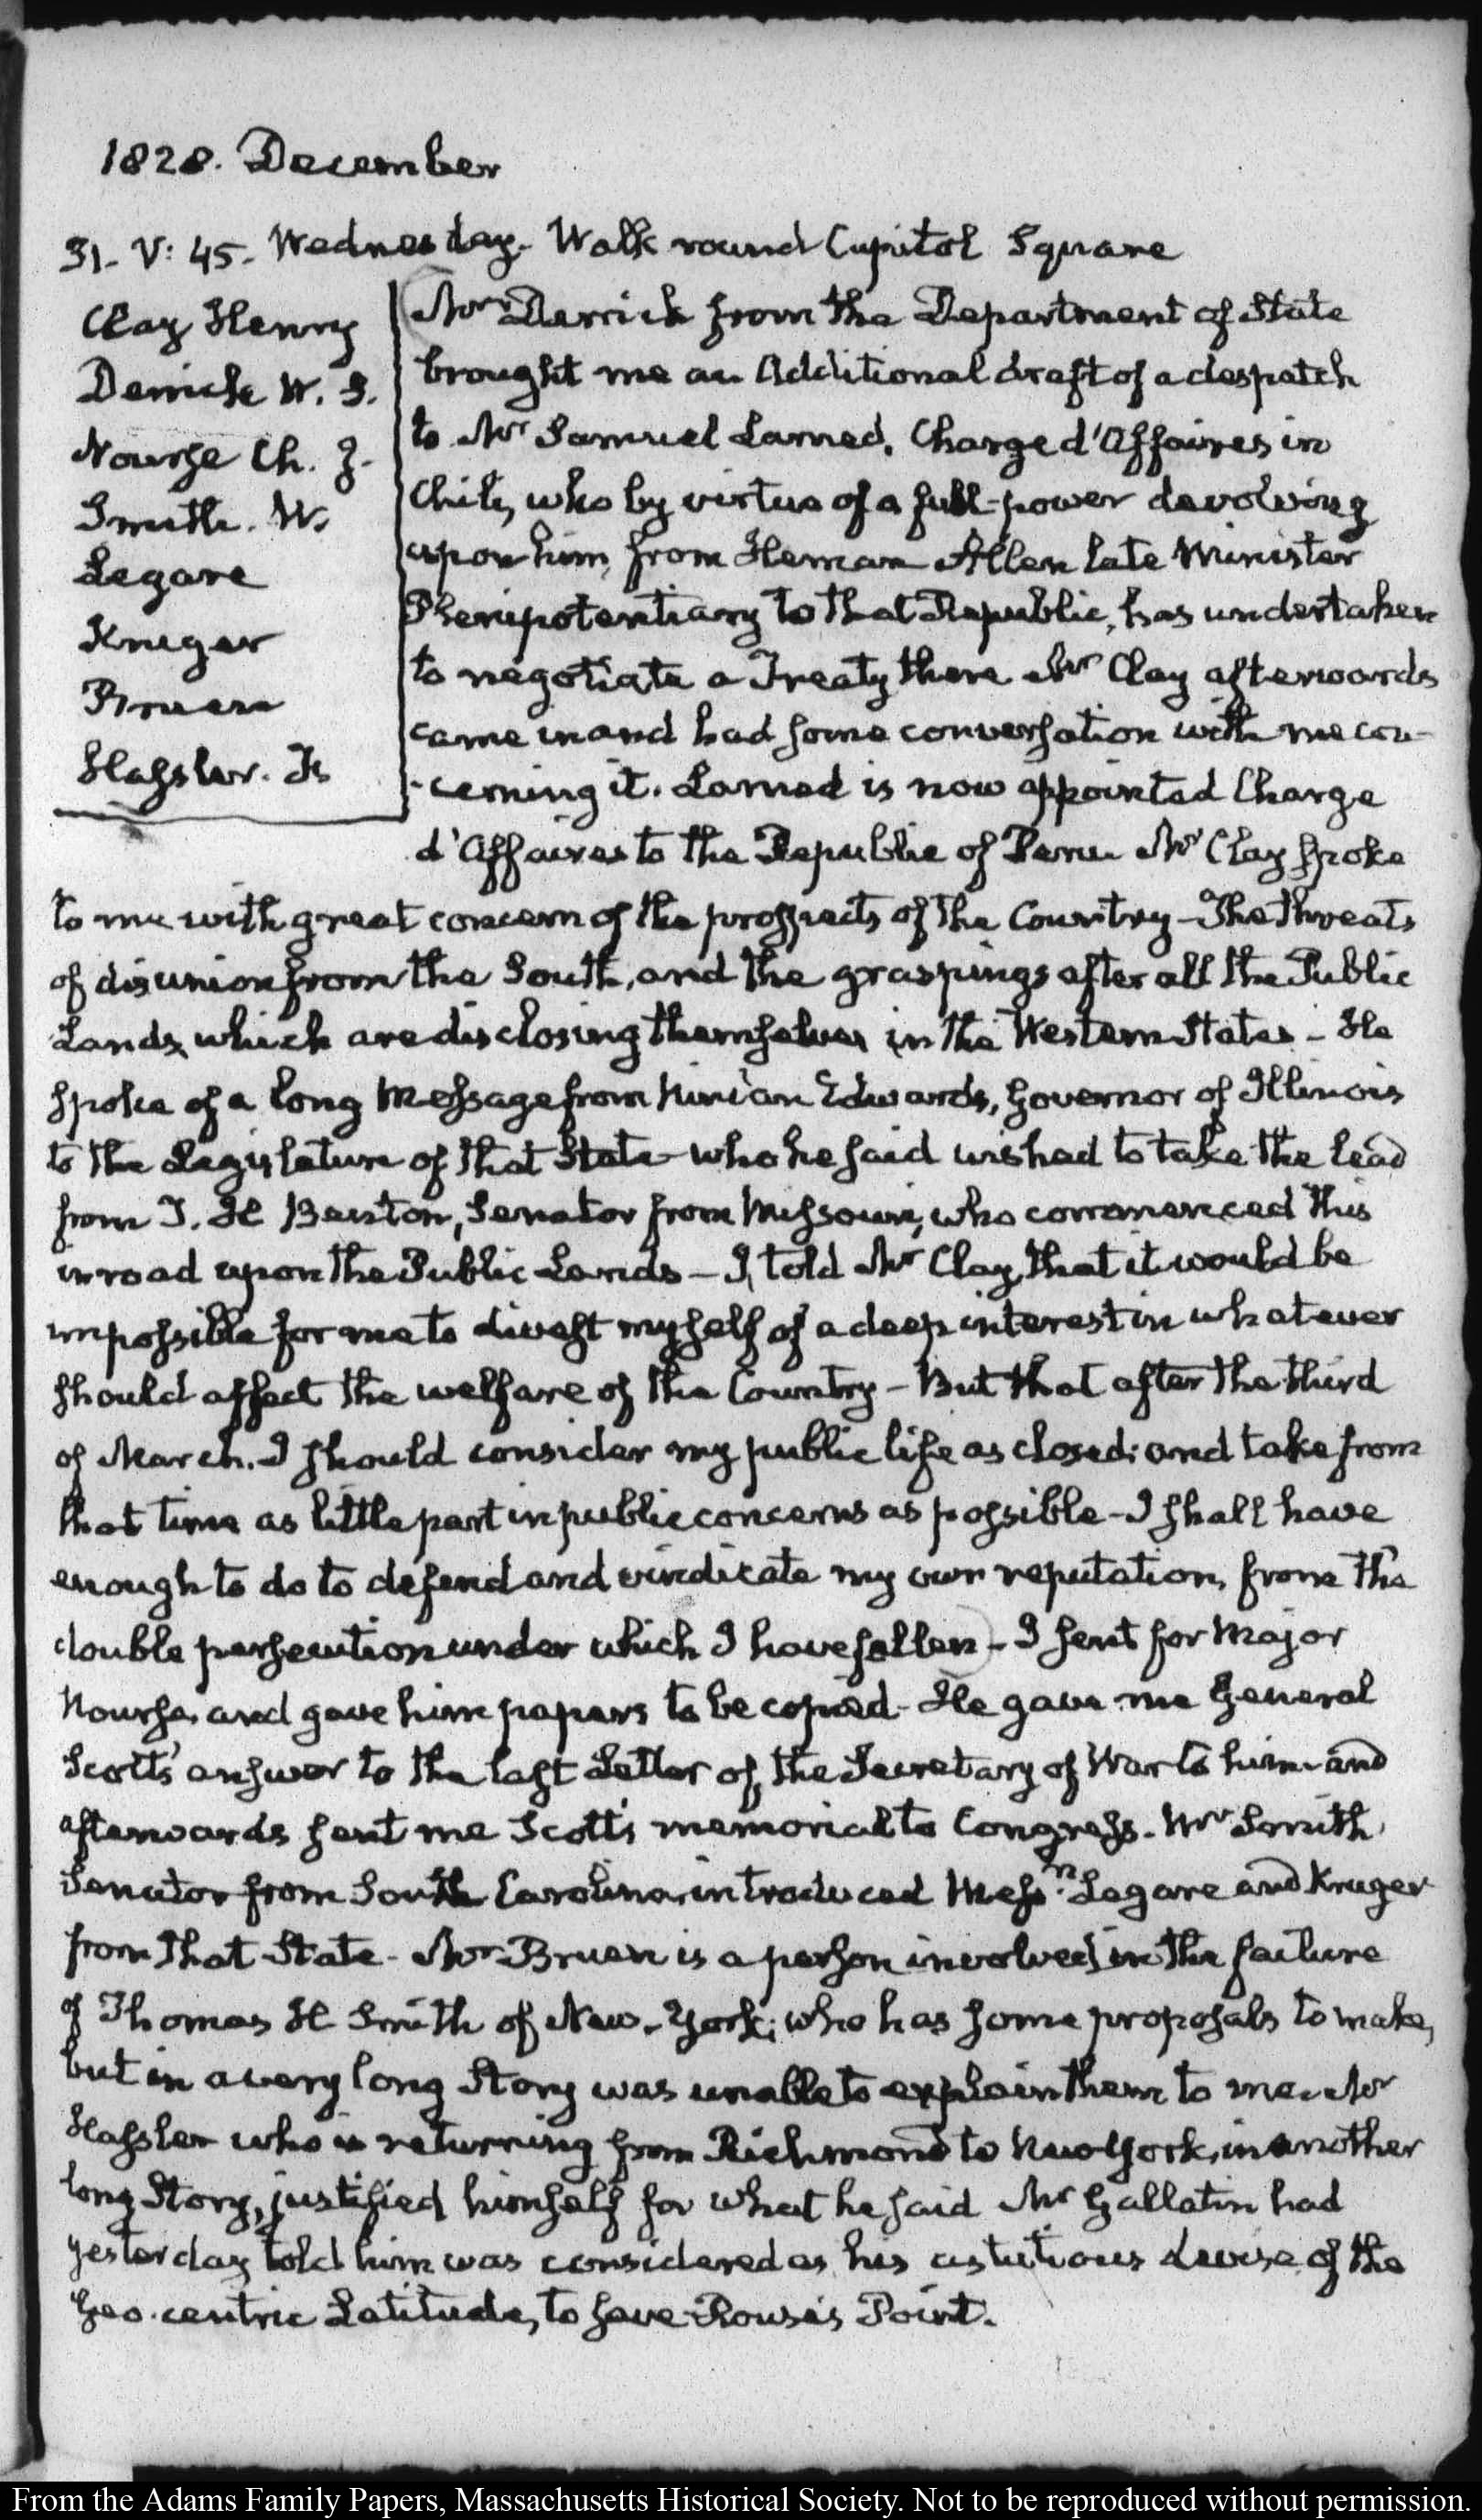 1828. December
31. V: 45. Wednesday. Walk round Capitol Square
Clay Henry
Derrick W. S.
Nourse Ch. J.
Smith. W.
Legare
Kruger
Bruen
Hassler. F.
Mr Derrick from the Department of State
brought me an Additional draft of a despatch
to Mr Samuel Larned, Chargé d'Affaires in
Chili, who by virtue of a full-power devolving
upon him, from Heman Allen late Minister
Plenipotentiary to that Republic, has undertaken
to negotiate a Treaty there Mr Clay afterwards
came in and had some conversation with me con-
-cerning it. Larned is now appointed Charge
d'Affaires to the Republic of Peru Mr Clay spoke
to me with great concern of the prospects of the Country - The threats
of disunion from the South, and the graspings after all the Public
Lands, which are disclosing themselves in the Western States - He
spoke of a long Message from Ninian Edwards, Governor of Illinois
to the Legislature of that State who he said wished to take the lead
from T. H Benton, Senator from Missouri, who commenced this
inroad upon the Public Lands - I told Mr Clay that it would be
impossible for me to divest myself of a deep interest in whatever
should affect the welfare of the Country - But that after the third
of March. I should consider my public life as closed; and take from
that time as little part in public concerns as possible - I shall have
enough to do to defend and vindicate my own reputation, from the
double persecution under which I have fallen - I sent for Major
Nourse, and gave him papers to be copied - He gave me General
Scott's answer to the last Letter of the Secretary of War to him and
afterwards sent me Scott's memorial to Congress. Mr Smith,
Senator from South Carolina, introduced Messrs Legare and Kruger
from that State - Mr Bruen is a person involved in the failure
of Thomas H Smith of New-York; who has some proposals to make,
but in a very long Story was unable to explain them to me. Mr
Hassler who is returning from Richmond to New York, in another
long Story, justified himself for what he said Mr Gallatin had
yesterday told him was considered as his astutious devise of the
Geo-centric Latitude, to save Rouse's Point.
From the Adams Family Papers, Massachusetts Historical Society. Not to be reproduced without permission.